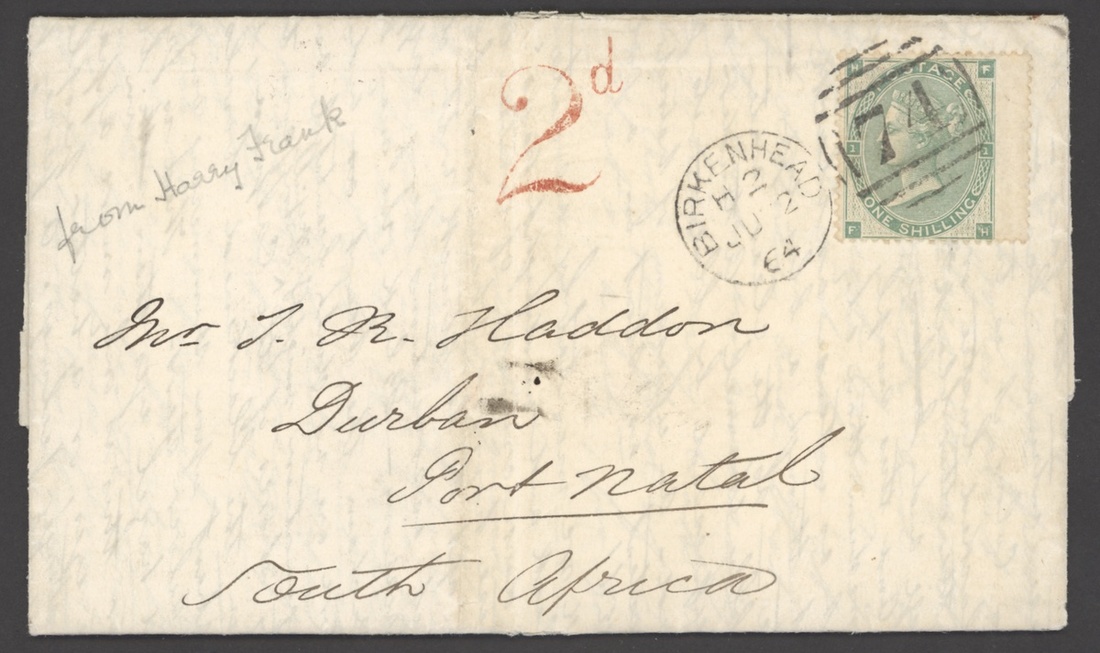 from Harry Frank
2d
BIRKENHEAD
H 21
JU 2
64
74
H POSTAGE F
1 1
ONE SHILLING
F H
Mr T. R. Haddon
Durban
Port Natal
South Africa